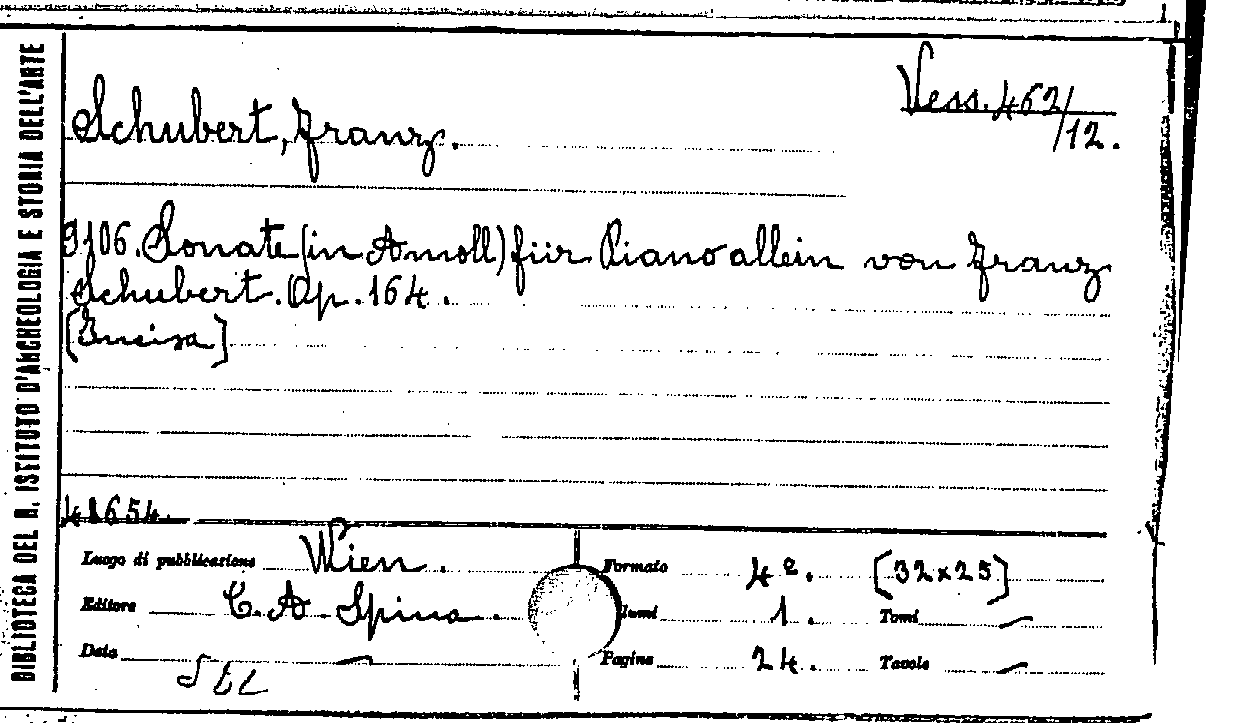 BIBLIOTECA DEL R. ISTITUTO D'ARCHEOLOGIA E STORIA DELL'ARTE
Vess. 462/12.
Schubert, Franz.
9106. Sonate (in A moll) für Piano allein von Franz
Schubert. Op. 164.
[Incisa]
41654.
Luogo di pubblicazione Wien.
Editore C. A. Spina.
Data —
Formato 4º. [32x25]
lumi 1. Tomi —
Pagine 24. Tavole —